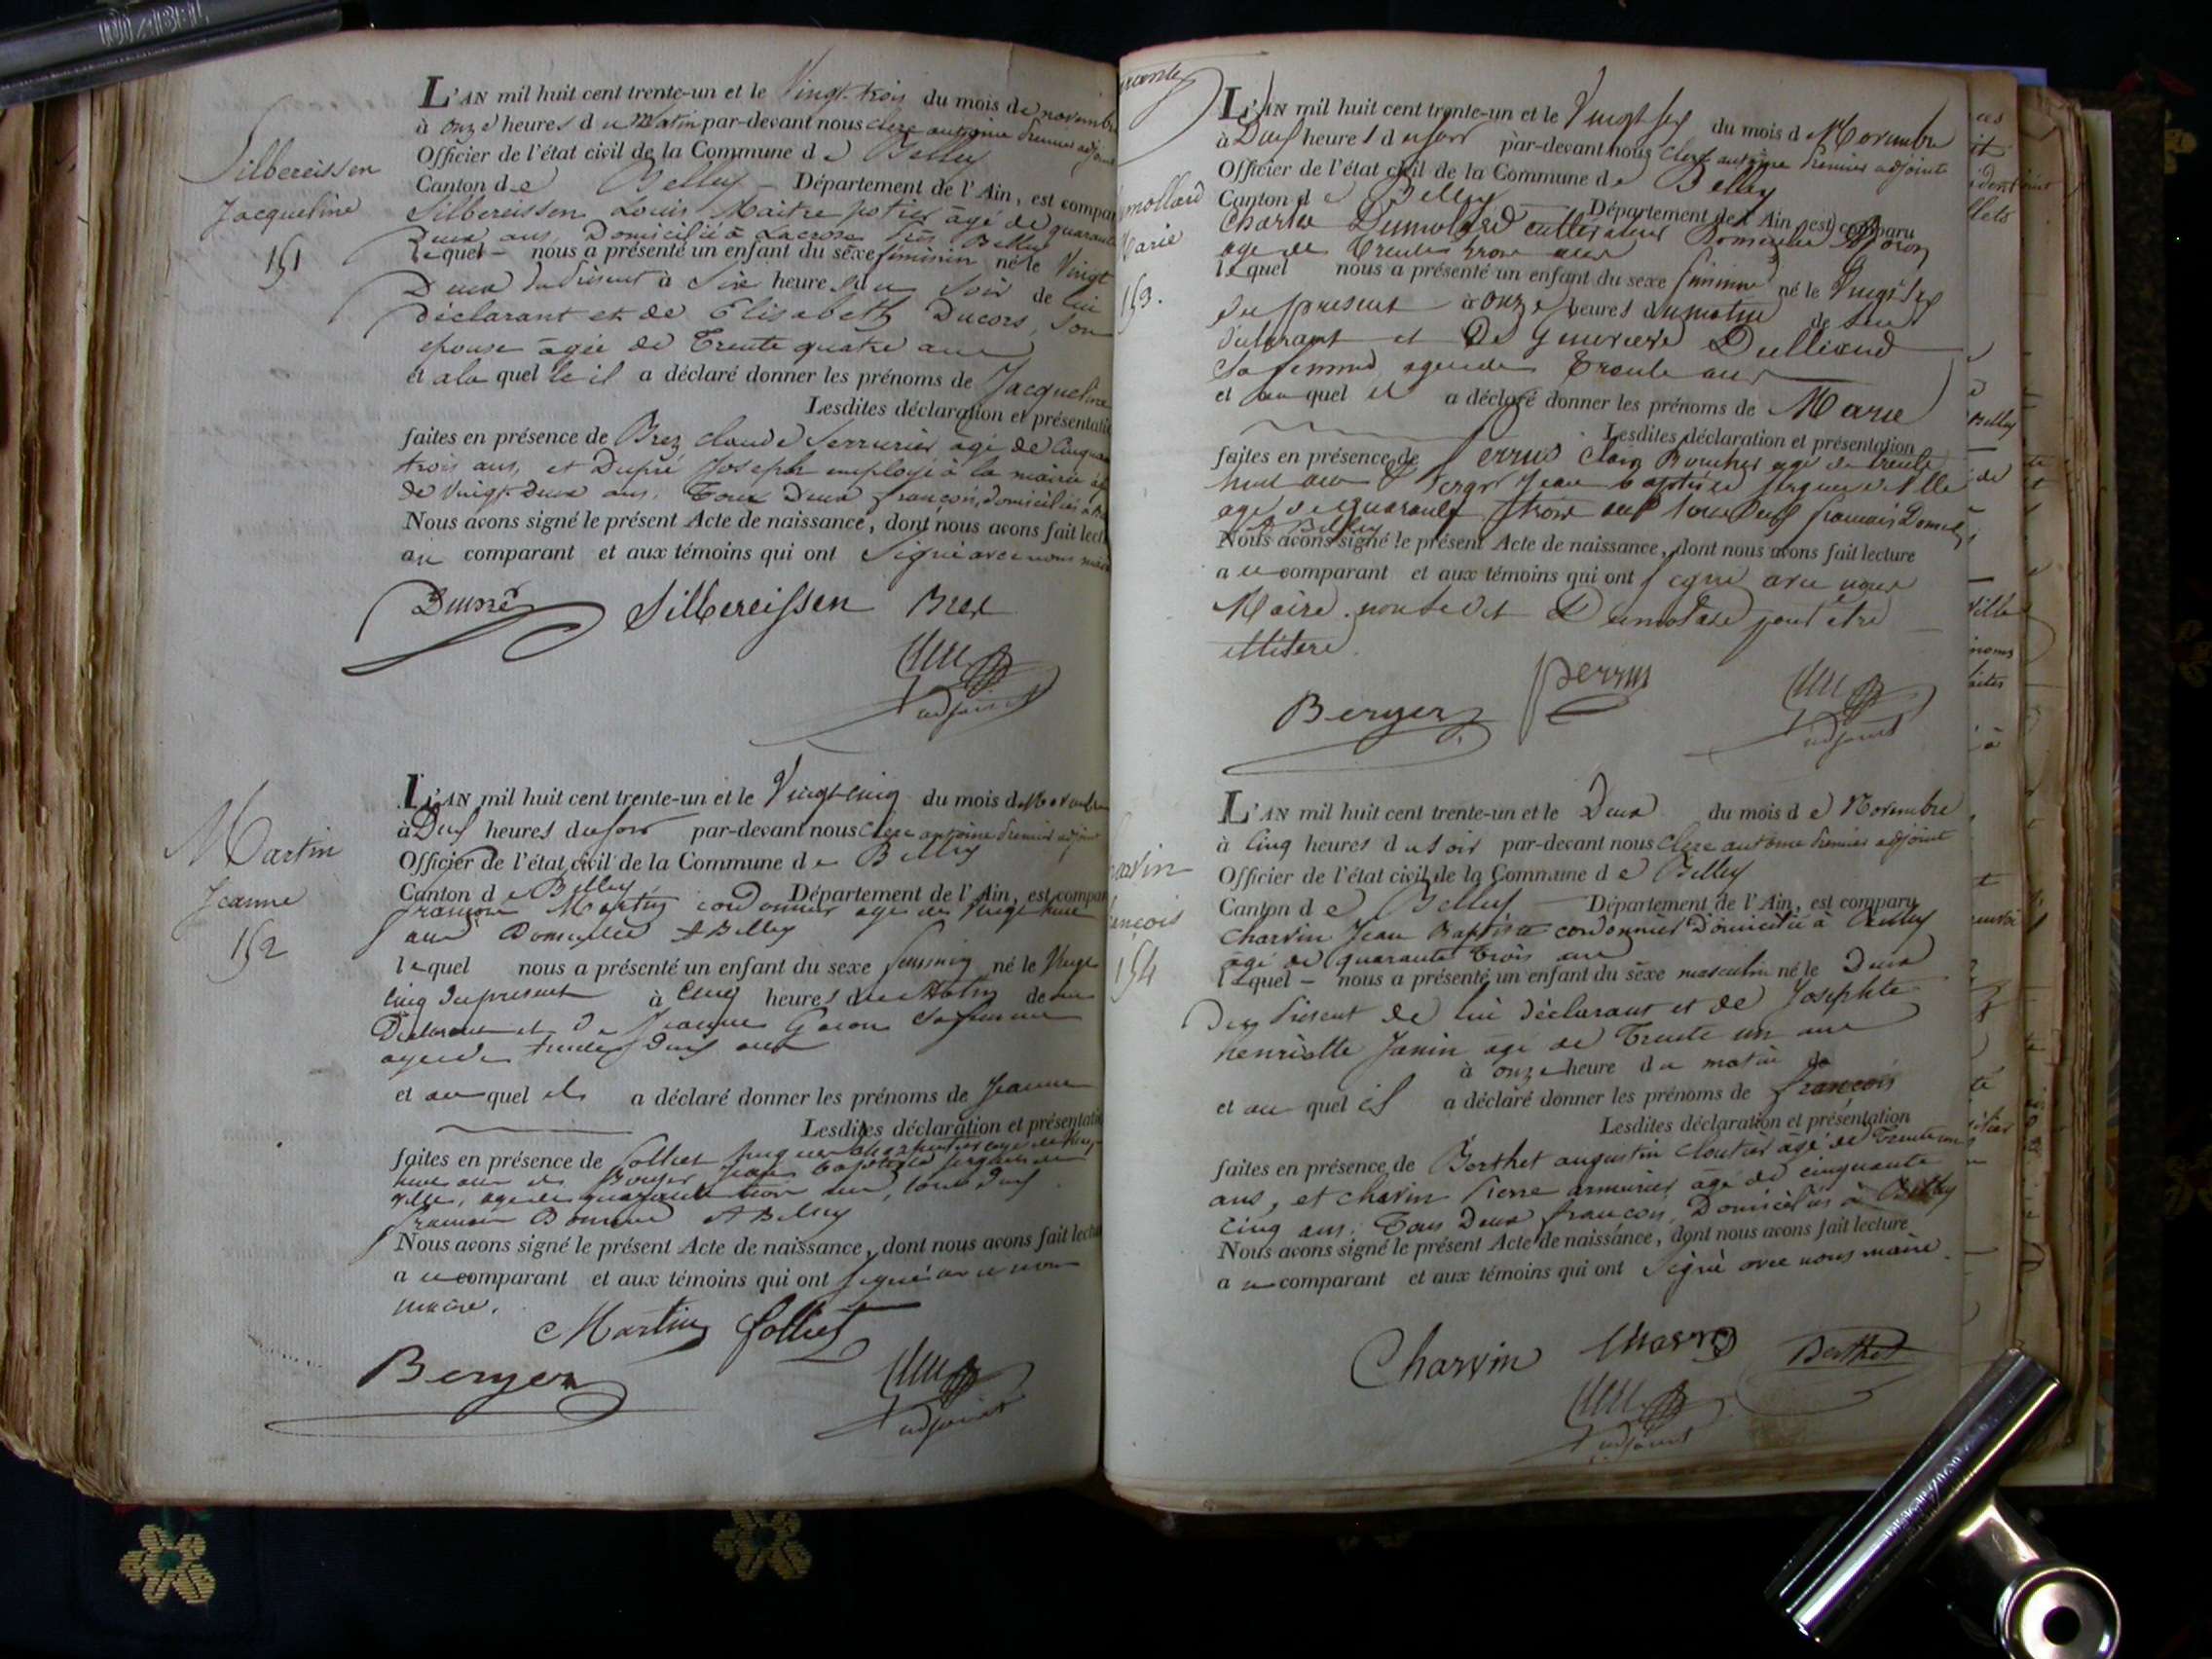 Silbereissen
Jacqueline
151
L'AN mil huit cent trente-un et le Vingt-trois du mois de novembre
à onze heures du Matin par-devant nous Clerc antoine Premier adjoint
Officier de l'état civil de la Commune de Belley
Canton de Belley Département de l'Ain, est compar
Silbereissen Louis Maitre potier âgé de quarante
Deux ans, Domicilié à Lacroze Belley
lequel nous a présenté un enfant du sexe féminin né le Vingt
Deux du Présent à Six heures du Soir de lui
déclarant et de Elisabeth Ducors, Son
epouse âgée de Trente quatre ans
et a la quelle il a déclaré donner les prénoms de Jacqueline
Lesdites déclaration et présentati
faites en présence de Brez claude Serrurier âgé de Cinquan
trois ans, et Dupré Joseph employé à la mairie
de Vingt-Deux ans. Tous Deux françois, domiciliés à
Nous avons signé le présent Acte de naissance, dont nous avons fait lect
au comparant et aux témoins qui ont Signé avec nous
Silbereissen Brez
adjoint
Martin
Jeanne
152
L'AN mil huit cent trente-un et le Vingt-cinq du mois de Novembre
à Deux heures du soir par-devant nous Clerc antoine Premier adjoint
Officier de l'état civil de la Commune de Belley
Canton de Belley Département de l'Ain, est compar
françois Martin cordonnier agé de Vingt huit
ans Domicilié à Belley
lequel nous a présenté un enfant du sexe feminin né le Vingt
cinq du present à Cinq heures du Matin de lui
Declarant et de Jeanne sa femme
agée de trente Deux ans
et au quel il a déclaré donner les prénoms de Jeanne
Lesdites déclaration et présentatio
faites en présence de Folliet
Berger Jean baptiste sergent de
ville, agé de quarante trois ans, tous Deux
françois Domicilié à Belley
Nous avons signé le présent Acte de naissance, dont nous avons fait lectu
au comparant et aux témoins qui ont signé avec nous
maire.
Martin Folliet
Berger
adjoint
mollard
Marie
153.
L'AN mil huit cent trente-un et le Vingt Six du mois de Novembre
à Deux heures du soir par-devant nous Clerc antoine Premier adjoint
Officier de l'état civil de la Commune de Belley
Canton de Belley Département de l'Ain, est comparu
Charles Dumolard cultivateur Domicilié
agé de Trente trois ans
lequel nous a présenté un enfant du sexe feminin né le Vingt Six
du present à onze heures du matin de lui
declarant et De Genevieve Dullioud
Sa femme agée de Trente ans
et au quel il a déclaré donner les prénoms de Marie
Lesdites déclaration et présentation
faites en présence de Perrus Boucher agé de trente
huit ans & Berger Jean baptiste sergent de Ville
agé de quarante trois ans tous Deux françois Domiciliés
à Belley
Nous avons signé le présent Acte de naissance, dont nous avons fait lecture
au comparant et aux témoins qui ont signé avec nous
Maire. non ledit Dumolard pour être
illitere.
Berger Perrus
adjoint
arvin
ançois
154
L'AN mil huit cent trente-un et le Deux du mois de Novembre
à Cinq heures du soir par-devant nous Clerc antoine Premier adjoint
Officier de l'état civil de la Commune de Belley
Canton de Belley Département de l'Ain, est comparu
Charvin Jean Baptiste cordonnier Domicilié à Belley
âgé de quarante Trois ans
lequel nous a présenté un enfant du sexe masculin né le Deux
du Présent de lui déclarant et de Josephte
henriette Janin agé de Trente un ans
à onze heure du matin de
et au quel il a déclaré donner les prénoms de françois
Lesdites déclaration et présentation
faites en présence de Berthet augustin Cloutier âgé de Trente un
ans, et charvin Pierre armurier âgé de cinquante
cinq ans; Tous Deux françois, Domiciliés à Belley
Nous avons signé le présent Acte de naissance, dont nous avons fait lecture
au comparant et aux témoins qui ont Signé avec nous maire.
Charvin Berthet
adjoint